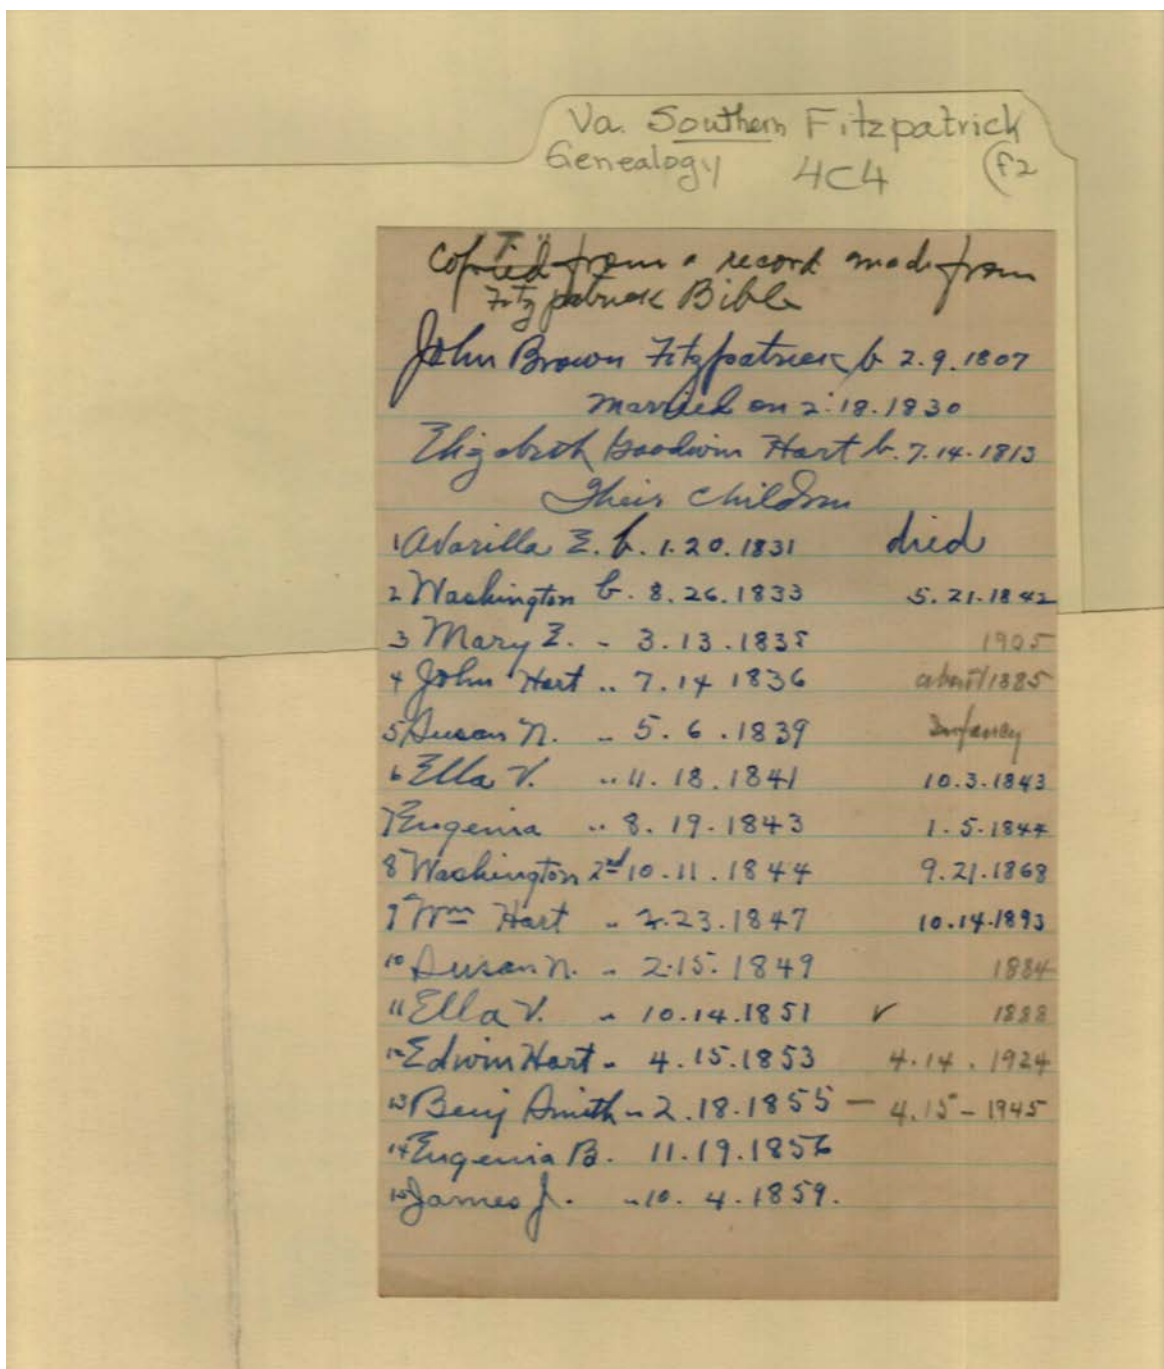 Va. Southern Fitzpatrick
Genealogy 4C4 F2
Copied from a record made from
Fitzpatrick Bible
John Brown Fitzpatrick b 2.9.1807
Married on 2.18.1830
Elizabeth Goodwin Hart b. 7.14.1813
Their Children
1 Avarilla E. b. 1.20.1831 died
2 Washington b. 8.26.1833 5.21.1842
3 Mary E. - 3.13.1835 1905
4 John Hart .. 7.14 1836 about 1885
5 Susan N. .. 5.6.1839 Infancy
6 Ella V. .. 11.18.1841 10.3.1843
7 Eugenia .. 8.19.1843 1.5.1844
8 Washington 2nd 10.11.1844 9.21.1868
9 Wm Hart .. 2.23.1847 10.14.1893
10 Susan N. - 2.15.1849 1884
11 Ella V. .. 10.14.1851 ✓ 1888
12 Edwin Hart - 4.15.1853 4.14.1924
13 Benj Smith .. 2.18.1855 — 4.15-1945
14 Eugenia B. 11.19.1856
15 James J. .. 10.4.1859.